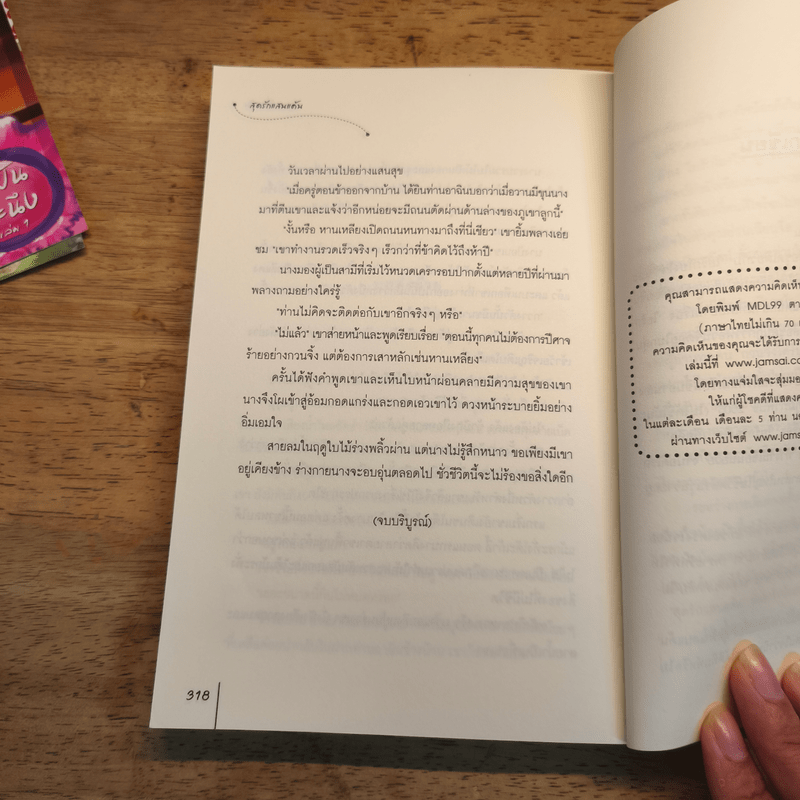 สุดรักแสนแค้น
วันเวลาผ่านไปอย่างแสนสุข
"เมื่อครู่ตอนข้าออกจากบ้าน ได้ยินท่านอาฉินบอกว่าเมื่อวานมีขุนนาง
มาที่ตีนเขาและแจ้งว่าอีกหน่อยจะมีถนนตัดผ่านด้านล่างของภูเขาลูกนี้"
"งั้นหรือ หานเหลียงเปิดถนนหนทางมาถึงที่นี่เชียว" เขายิ้มพลางเอ่ย
ชม "เขาทำงานรวดเร็วจริงๆ เร็วกว่าที่ข้าคิดไว้ถึงห้าปี"
นางมองผู้เป็นสามีที่เริ่มไว้หนวดเครารอบปากตั้งแต่หลายปีที่ผ่านมา
พลางถามอย่างใคร่รู้
"ท่านไม่คิดจะติดต่อกับเขาอีกจริงๆ หรือ"
"ไม่แล้ว" เขาส่ายหน้าและพูดเรียบเรื่อย "ตอนนี้ทุกคนไม่ต้องการปีศาจ
ร้ายอย่างกวนจิ้ง แต่ต้องการเสาหลักเช่นหานเหลียง"
ครั้นได้ฟังคำพูดเขาและเห็นใบหน้าผ่อนคลายมีความสุขของเขา
นางจึงโผเข้าสู่อ้อมกอดแกร่งและกอดเอวเขาไว้ ดวงหน้าระบายยิ้มอย่าง
อิ่มเอมใจ
สายลมในฤดูใบไม้ร่วงพลิ้วผ่าน แต่นางไม่รู้สึกหนาว ขอเพียงมีเขา
อยู่เคียงข้าง ร่างกายนางจะอบอุ่นตลอดไป ชั่วชีวิตนี้จะไม่ร้องขอสิ่งใดอีก
(จบบริบูรณ์)
318
คุณสามารถแสดงความคิดเห็น
โดยพิมพ์ MDL99 ตา
(ภาษาไทยไม่เกิน 70
ความคิดเห็นของคุณจะได้รับการ
เล่มนี้ที่ www.jamsai.co
โดยทางแจ่มใสจะสุ่มมอ
ให้แก่ผู้โชคดีที่แสดงค
ในแต่ละเดือน เดือนละ 5 ท่าน
ผ่านทางเว็บไซต์ www.jams